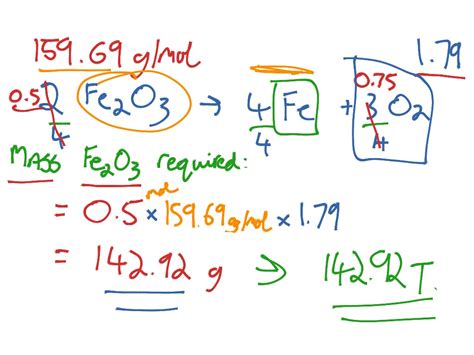 159.69 g/mol 1.79
0.5 2/4 Fe₂O₃ → 4/4 Fe + 0.75 3/4 O₂
MASS Fe₂O₃ required:
= 0.5 mol × 159.69 g/mol × 1.79
= 142.92 g → 142.92 T.